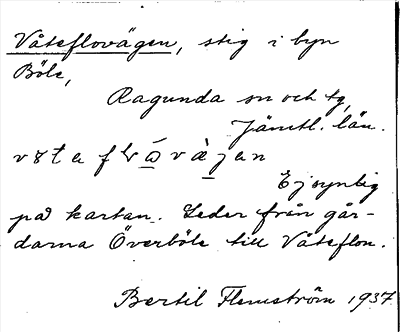 Våteflovägen, stig i byn
Böle,
Ragunda sn och tg,
Jämtl. län.
Ej synlig
på kartan. Leder från går-
darna Överböle till Våteflon.
Bertil Flemström 1937